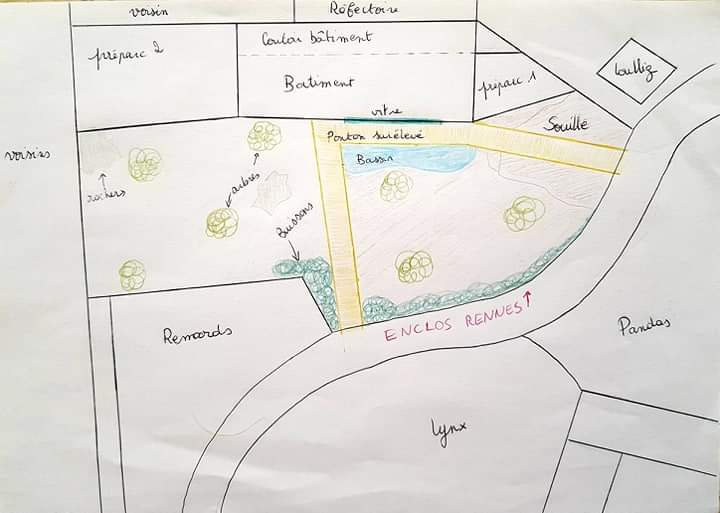 voisin
Réfectoire
prépare 2
Couloir bâtiment
Batiment
prépare 1
vitre
Ponton surélevé
Souille
Bassin
voisins
rochers
arbres
Buissons
ENCLOS RENNES
Renards
Pandas
Lynx